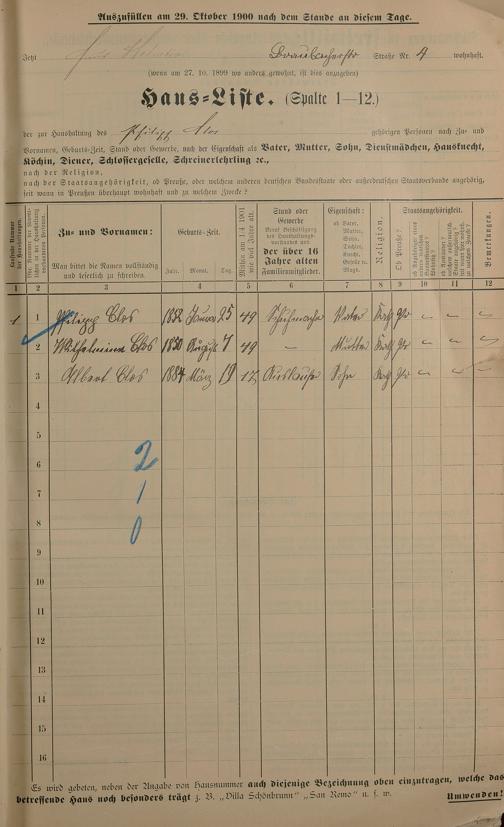 Auszufüllen am 29. Oktober 1900 nach dem Stande an diesem Tage.
Jetzt Straße Nr. 4 wohnhaft.
(wenn am 27. 10. 1899 wo anders gewohnt, ist dies anzugeben)
Haus-Liste. (Spalte 1—12.)
der zur Haushaltung des Philipp Clos gehörigen Personen nach Zu- und
Vornamen, Geburts-Zeit, Stand oder Gewerbe, nach der Eigenschaft als Vater, Mutter, Sohn, Dienstmädchen, Hausknecht,
Köchin, Diener, Schlossergeselle, Schreinerlehrling ꝛc.,
nach der Religion,
nach der Staatsangehörigkeit, ob Preuße, oder welchem anderen deutschen Bundesstaate oder außerdeutschen Staatsverbande angehörig,
seit wann in Preußen überhaupt wohnhaft und zu welchem Zwecke?
Laufende Nummer der Haushaltungen.
Zu- und Vornamen:
Man bittet die Namen vollständig und leserlich zu schreiben.
Geburts-Zeit.
Jahr. Monat. Tag.
Mithin am 1/4 1901 wie viel Jahre alt.
Stand oder Gewerbe
der über 16 Jahre alten Familienmitglieder.
Eigenschaft:
ob Vater, Mutter, Sohn, Tochter, Knecht, Geselle rc. Magd.
Religion.
Staatsangehörigkeit.
Ob Preuße?
Bemerkungen.
1 2 3 4 5 6 7 8 9 10 11 12
1 1 Philipp Clos 1852 Januar 25 49 Schuhmacher Vater Kath Pr — — —
2 Wilhelmine Clos 1850 August 7 49 — Mutter Kath Pr — — —
3 Albert Clos 1884 März 19 17 Sohn Kath Pr — — —
4
5
6
2
7
1
8
0
9
10
11
12
13
14
15
16
Es wird gebeten, neben der Angabe von Hausnummer auch diejenige Bezeichnung oben einzutragen, welche das
betreffende Haus noch besonders trägt z. B. „Villa Schönbrunn" „San Remo" u. s. w. Umwenden!